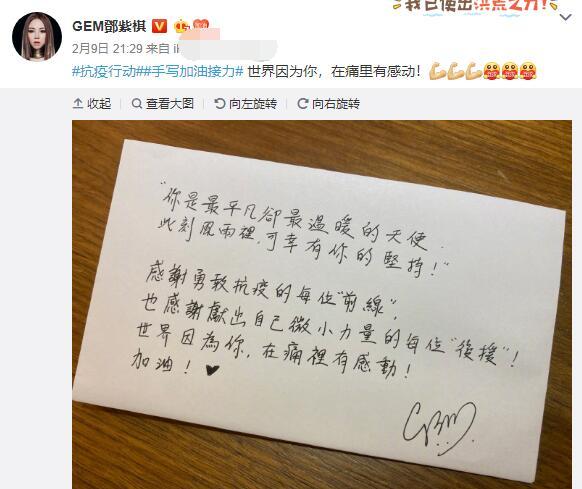 我已使出洪荒之力!
GEM鄧紫棋
2月9日 21:29 来自
#抗疫行动##手写加油接力# 世界因为你，在痛里有感动！
收起 查看大图 向左旋转 向右旋转
"你是最平凡卻最溫暖的天使.
此刻風雨裡,可幸有你的堅持!"
感謝勇敢抗疫的每位"前線",
也感謝獻出自己微小力量的每位"後援"!
世界因為你,在痛裡有感動!
加油! ♥
GEM